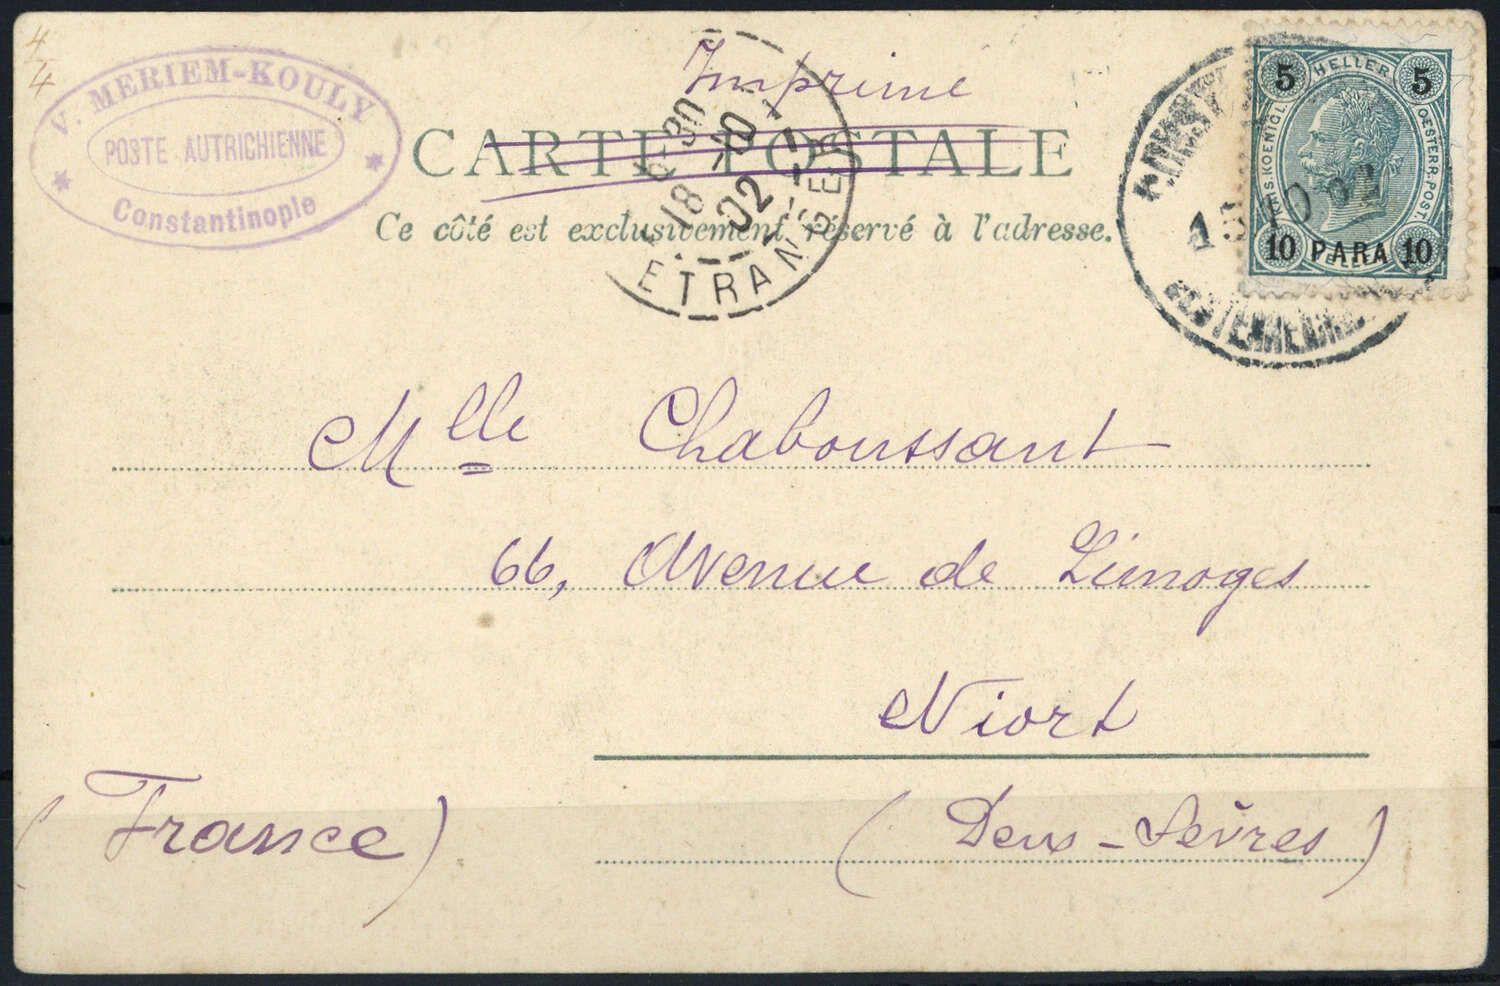 4/4
V. MERIEM-KOULY
POSTE AUTRICHIENNE
Constantinople
Imprimé
CARTE POSTALE
Ce côté est exclusivement réservé à l'adresse.
6-30
18 -10
02
ETRANGER
5 HELLER 5
KAIS. KOENIGL. OESTERR. POST.
10 PARA 10
Mlle Chaboussant
66, Avenue de Limoges
Niort
(France)
(Deux-Sèvres)